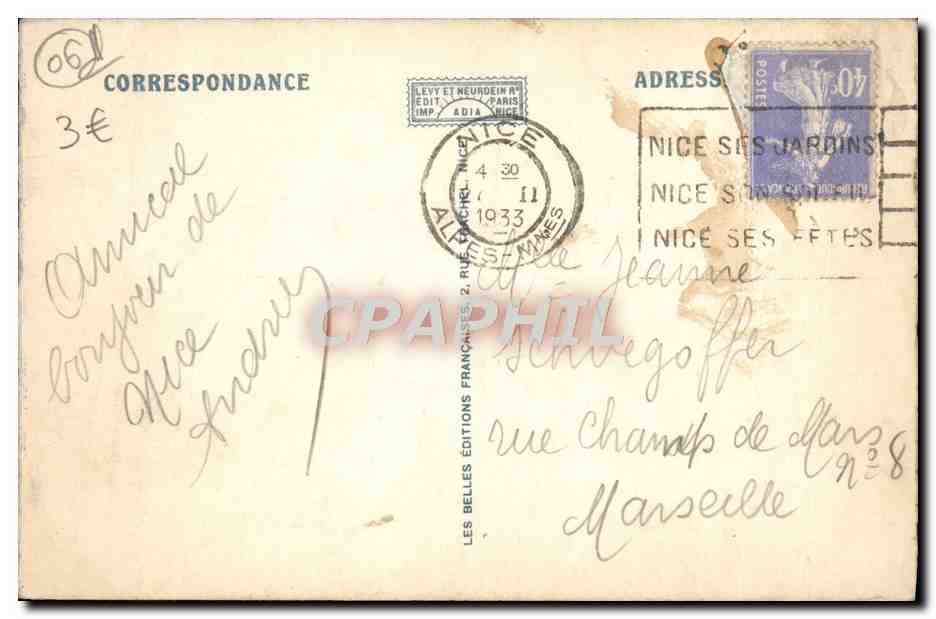 061
3€
CORRESPONDANCE
LEVY ET NEURDEIN Rs
EDIT PARIS
IMP. ADIA NICE
ADRESS
NICE
4 30
7 II
1933
ALPES-MMES
NICE SES JARDINS
NICE SON
NICE SES FÊTES
POSTES
40c
Amical
bonjour de
Nice
Andrée
LES BELLES ÉDITIONS FRANÇAISES, 2, RUE TRACHEL, NICE
CPAPHIL
Mlle Jeanne
Schwegoffer
rue Champs de Mars
No 8
Marseille